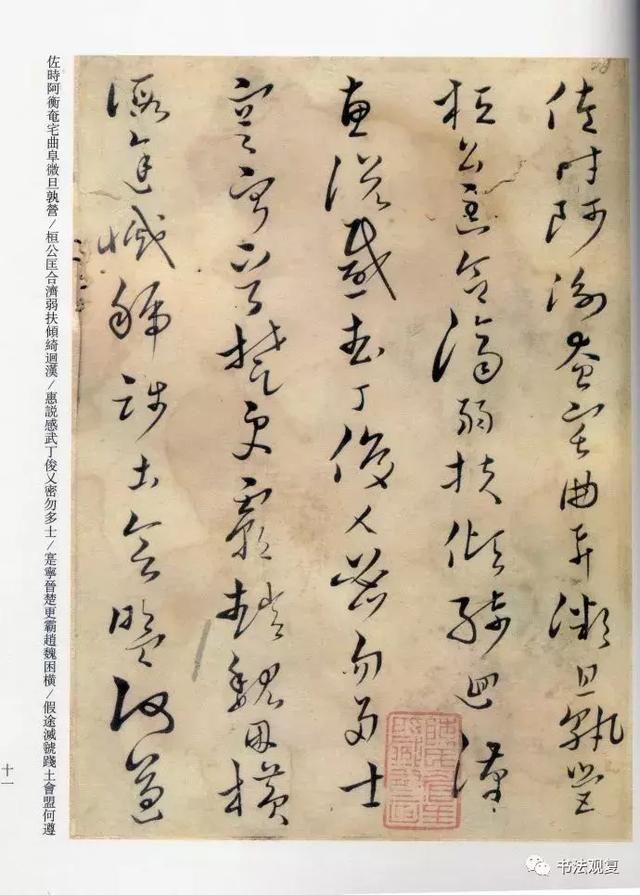 佐時阿衡奄宅曲阜微旦孰營
桓公匡合濟弱扶傾綺迴漢
惠説感武丁俊乂密勿多士
寔寧晉楚更霸趙魏困橫
假途滅虢踐土會盟何遵
佐時阿衡奄宅曲阜微旦孰營/桓公匡合濟弱扶傾綺迴漢/惠説感武丁俊乂密勿多士/寔寧晉楚更霸趙魏困橫/假途滅虢踐土會盟何遵
十一
书法观复